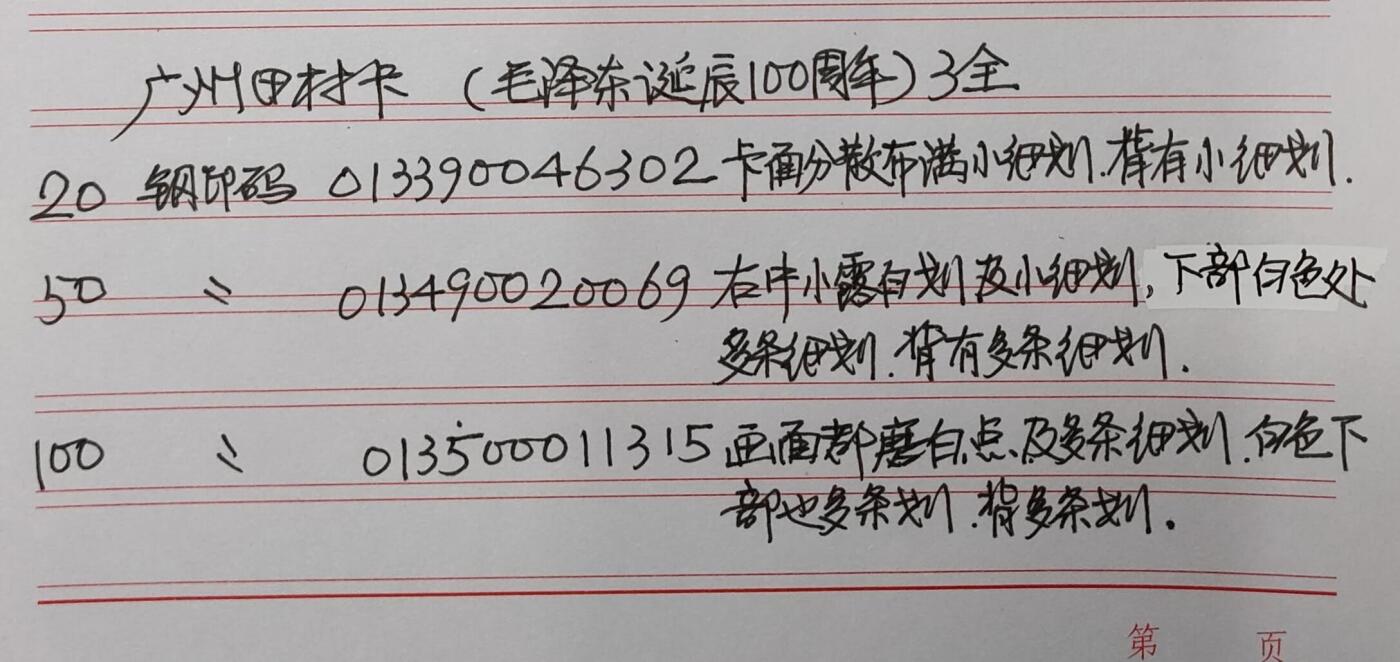 广州田村卡 （毛泽东诞辰100周年）3全
20 钢印码 013390046302 卡面分散布满小细划.背有小细划.
50 〃 013490020069 右中小露白划及小细划，下部白色处
多条细划.背有多条细划.
100 〃 013500011315 画面都磨白点及多条细划.白色下
部也多条划.背多条划。
第 页